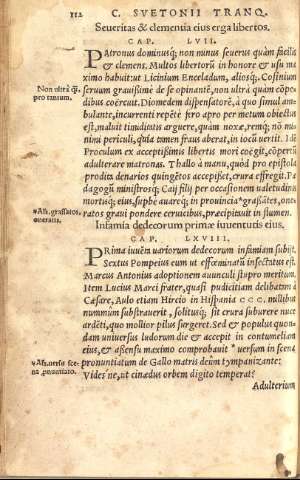 112 C. SVETONII TRANQ.
Seueritas & clementia eius erga libertos.
CAP. LVII.
PAtronus dominusq; non minus seuerus quàm facilis
& clemens. Multos libertorū in honore & usu ma
ximo habuit ut Licinium Enceladum, aliosq;. Cosmum
seruum grauißimè de se opinantē, non ultrà quàm cōpe
Non ultrà q̄.
pro tantum.
dibus coërcuit. Diomedem dispensatorē, à quo simul am
bulante, incurrenti repētè fero apro per metum obiectus
est, maluit timiditatis arguere, quàm noxæ, remq; nō mi
nimi periculi, quia tamen fraus aberat, in iocū uertit. Idē
Proculum ex acceptißimis libertis mori coëgit, cōpertū
adulterare matronas. Thallo à manu, quòd pro epistola
prodita denarios quingētos accepißet, crura effregit. Pæ
dagogū ministrosq; Caij filij per occasionem ualetudinis
mortisq; eius, supbè auarèq; in prouincia *graßātes, one
*Als. grassatos.
oneratis.
ratos graui pondere ceruicibus, præcipitauit in flumen.
Infamia dedecorum primæ iuuentutis eius.
CAP. LXVIII.
PRima iuuēta uariorum dedecorum infamiam subijt.
Sextus Pompeius eum ut effœminatū insectatus est.
Marcus Antonius adoptionem auunculi stupro meritum.
Item Lucius Marci frater, quasi pudicitiam delibatam à
Cæsare, Aulo etiam Hircio in Hispania CCC. nullibus
nummûm substrauerit, solitusq; sit crura suburere nuce
ardēti, quo mollior pilus surgeret. Sed & populus quon
dam uniuersus ludorum die & accepit in contumeliam
eius, & aßensu maximo comprobauit * uersum in scena
*Als. uersū sce
na pnuntiatū.
pronuntiatum de Gallo matris deûm tympanizante:
Vides'ne, ut cinædus orbem digito temperat?
Adulterium